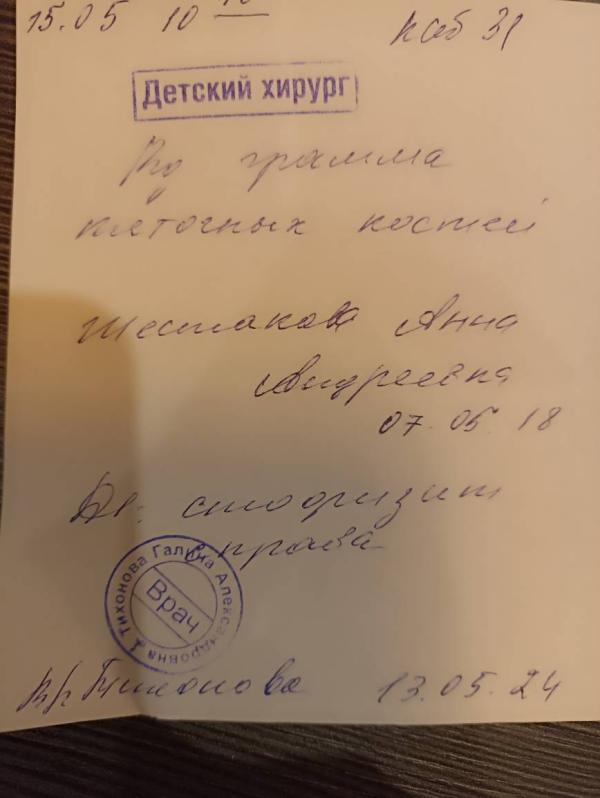 15.05 10 10 каб 31
Детский хирург
Rg грамма
пяточных костей
Шестакова Анна
Андреевна
07.05.18
Ds: апофизит
справа
Тихонова Галина Александровна
Врач
Вр Тихонова 13.05.24